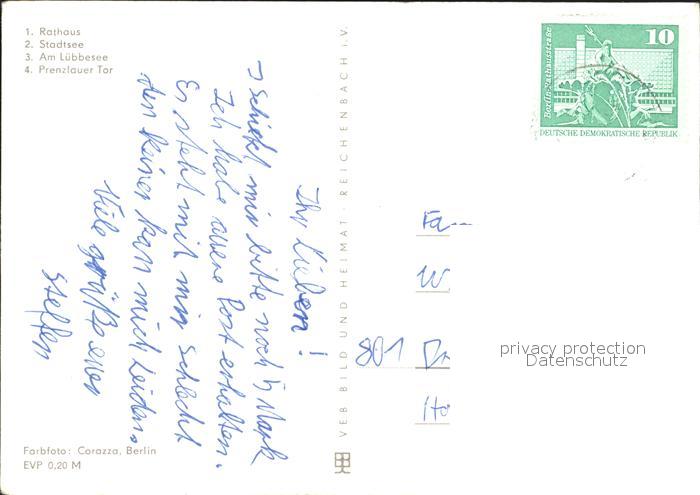 1. Rathaus
2. Stadtsee
3. Am Lübbesee
4. Prenzlauer Tor
Ihr Lieben!
schickt mir bitte noch 5 Mark
Ich habe euere Post erhalten.
Es steht mit mir schlecht
den keiner kan mich leiden.
Viele grüße euer
Steffen
Farbfoto: Corazza, Berlin
EVP 0,20 M
VEB BILD UND HEIMAT REICHENBACH i. V.
10
Berlin-Rathausstraße
DEUTSCHE DEMOKRATISCHE REPUBLIK
Fa
W
801 Dr
Ho
privacy protection
Datenschutz